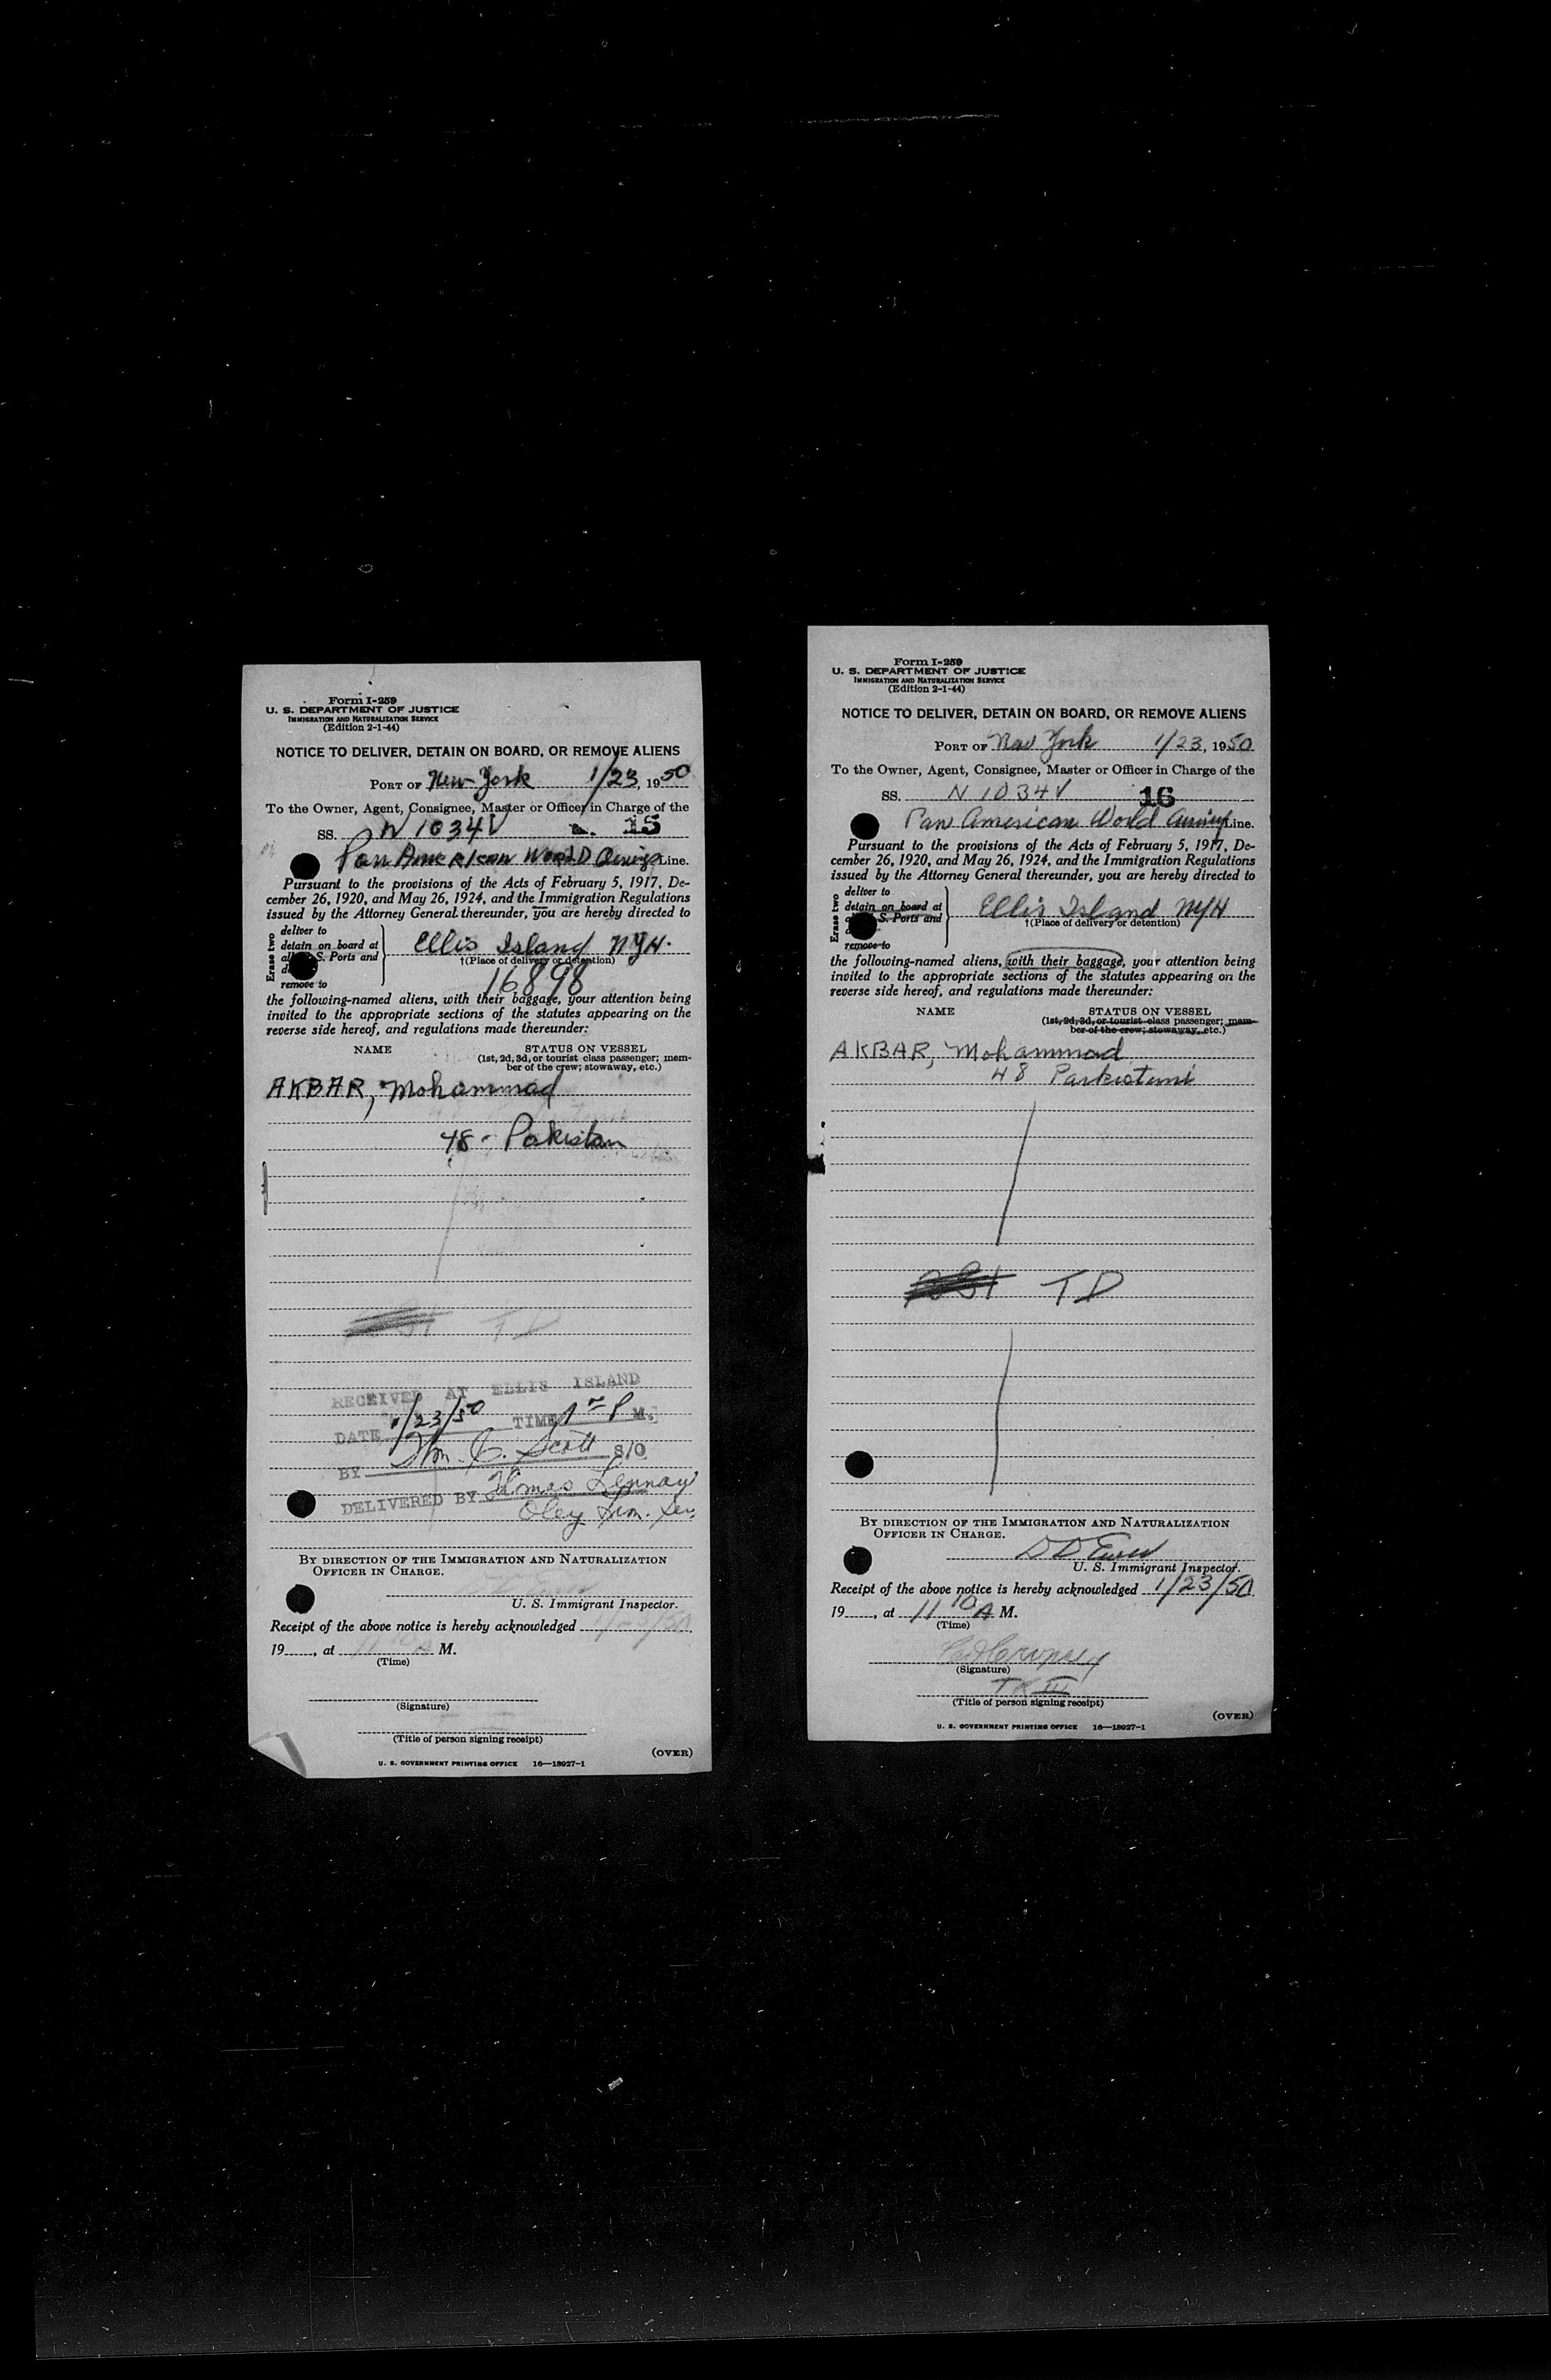 Form I-259
U. S. DEPARTMENT OF JUSTICE
IMMIGRATION AND NATURALIZATION SERVICE
(Edition 2-1-44)
NOTICE TO DELIVER, DETAIN ON BOARD, OR REMOVE ALIENS
PORT OF New York 1/23, 1950
To the Owner, Agent, Consignee, Master or Officer in Charge of the
SS. N 1034V 15
Pan American World Line.
Pursuant to the provisions of the Acts of February 5, 1917, De-
cember 26, 1920, and May 26, 1924, and the Immigration Regulations
issued by the Attorney General thereunder, you are hereby directed to
Erase two
deliver to
detain on board at
S. Ports and
remove to
Ellis Island NYH.
†(Place of delivery or detention)
16898
the following-named aliens, with their baggage, your attention being
invited to the appropriate sections of the statutes appearing on the
reverse side hereof, and regulations made thereunder:
NAME STATUS ON VESSEL
(1st, 2d, 3d, or tourist class passenger; mem-
ber of the crew; stowaway, etc.)
AKBAR, Mohammad
48 - Pakistan
TD
RECEIVED AT ELLIS ISLAND
DATE 1/23/50 TIME P M.
BY Wm. C. Scott S/O
DELIVERED BY
BY DIRECTION OF THE IMMIGRATION AND NATURALIZATION
OFFICER IN CHARGE.
U. S. Immigrant Inspector.
Receipt of the above notice is hereby acknowledged
19 , at 11 10 A M.
(Time)
(Signature)
(Title of person signing receipt)
(OVER)
U. S. GOVERNMENT PRINTING OFFICE 16—18927-1
Form I-259
U. S. DEPARTMENT OF JUSTICE
IMMIGRATION AND NATURALIZATION SERVICE
(Edition 2-1-44)
NOTICE TO DELIVER, DETAIN ON BOARD, OR REMOVE ALIENS
PORT OF New York 1/23, 1950
To the Owner, Agent, Consignee, Master or Officer in Charge of the
SS. N 1034V 16
Pan American World Line.
Pursuant to the provisions of the Acts of February 5, 1917, De-
cember 26, 1920, and May 26, 1924, and the Immigration Regulations
issued by the Attorney General thereunder, you are hereby directed to
Erase two
deliver to
detain on board at
S. Ports and
remove to
Ellis Island NYH
†(Place of delivery or detention)
the following-named aliens, with their baggage, your attention being
invited to the appropriate sections of the statutes appearing on the
reverse side hereof, and regulations made thereunder:
NAME STATUS ON VESSEL
(1st, 2d, 3d, or tourist class passenger; mem-
ber of the crew; stowaway, etc.)
AKBAR, Mohammad
48
TD
BY DIRECTION OF THE IMMIGRATION AND NATURALIZATION
OFFICER IN CHARGE.
U. S. Immigrant Inspector.
Receipt of the above notice is hereby acknowledged 1/23/50
19 , at 11 10 A M.
(Time)
(Signature)
(Title of person signing receipt)
(OVER)
U. S. GOVERNMENT PRINTING OFFICE 16—18927-1